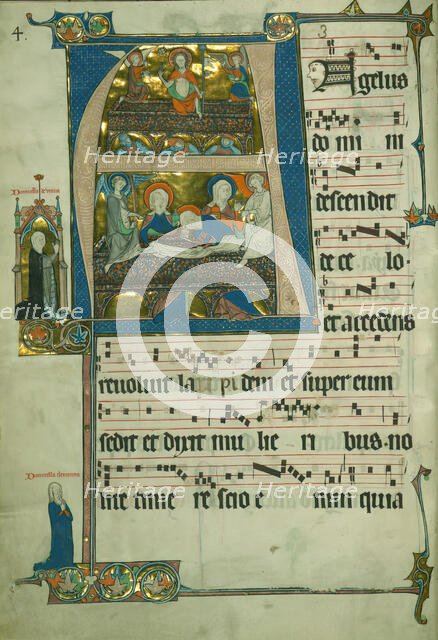 4.
3
Angelus
do mi ni
descendit
de ce lo
et accedens
revolvit la pi dem et super eum
sedit et dixit mu lie ri bus no
lite time re scio e nim quia
Heritage
Heritage
Heritage
Heritage
Heritage
Heritage
Heritage
Heritage